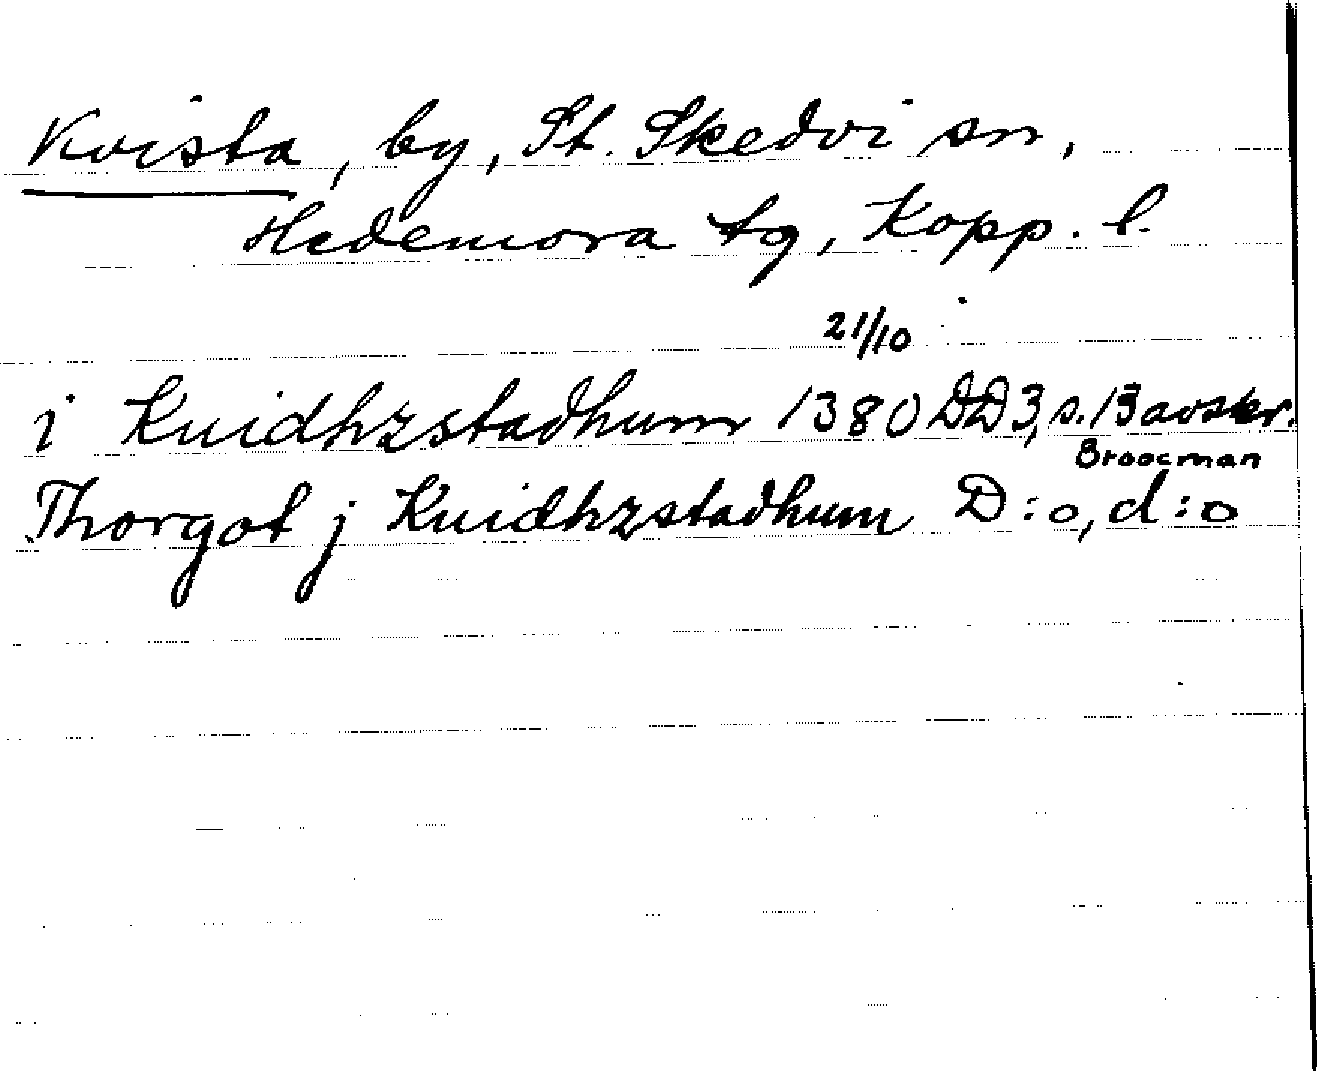 Kvista, by, St. Skedvi sn,
Hedemora tg, Kopp. l.
21/10
i Kuidhzstadhum 1380 DD3, s. 13 avskr.
Broocman
Thorgot j Kuidhzstadhum D:o, d:o